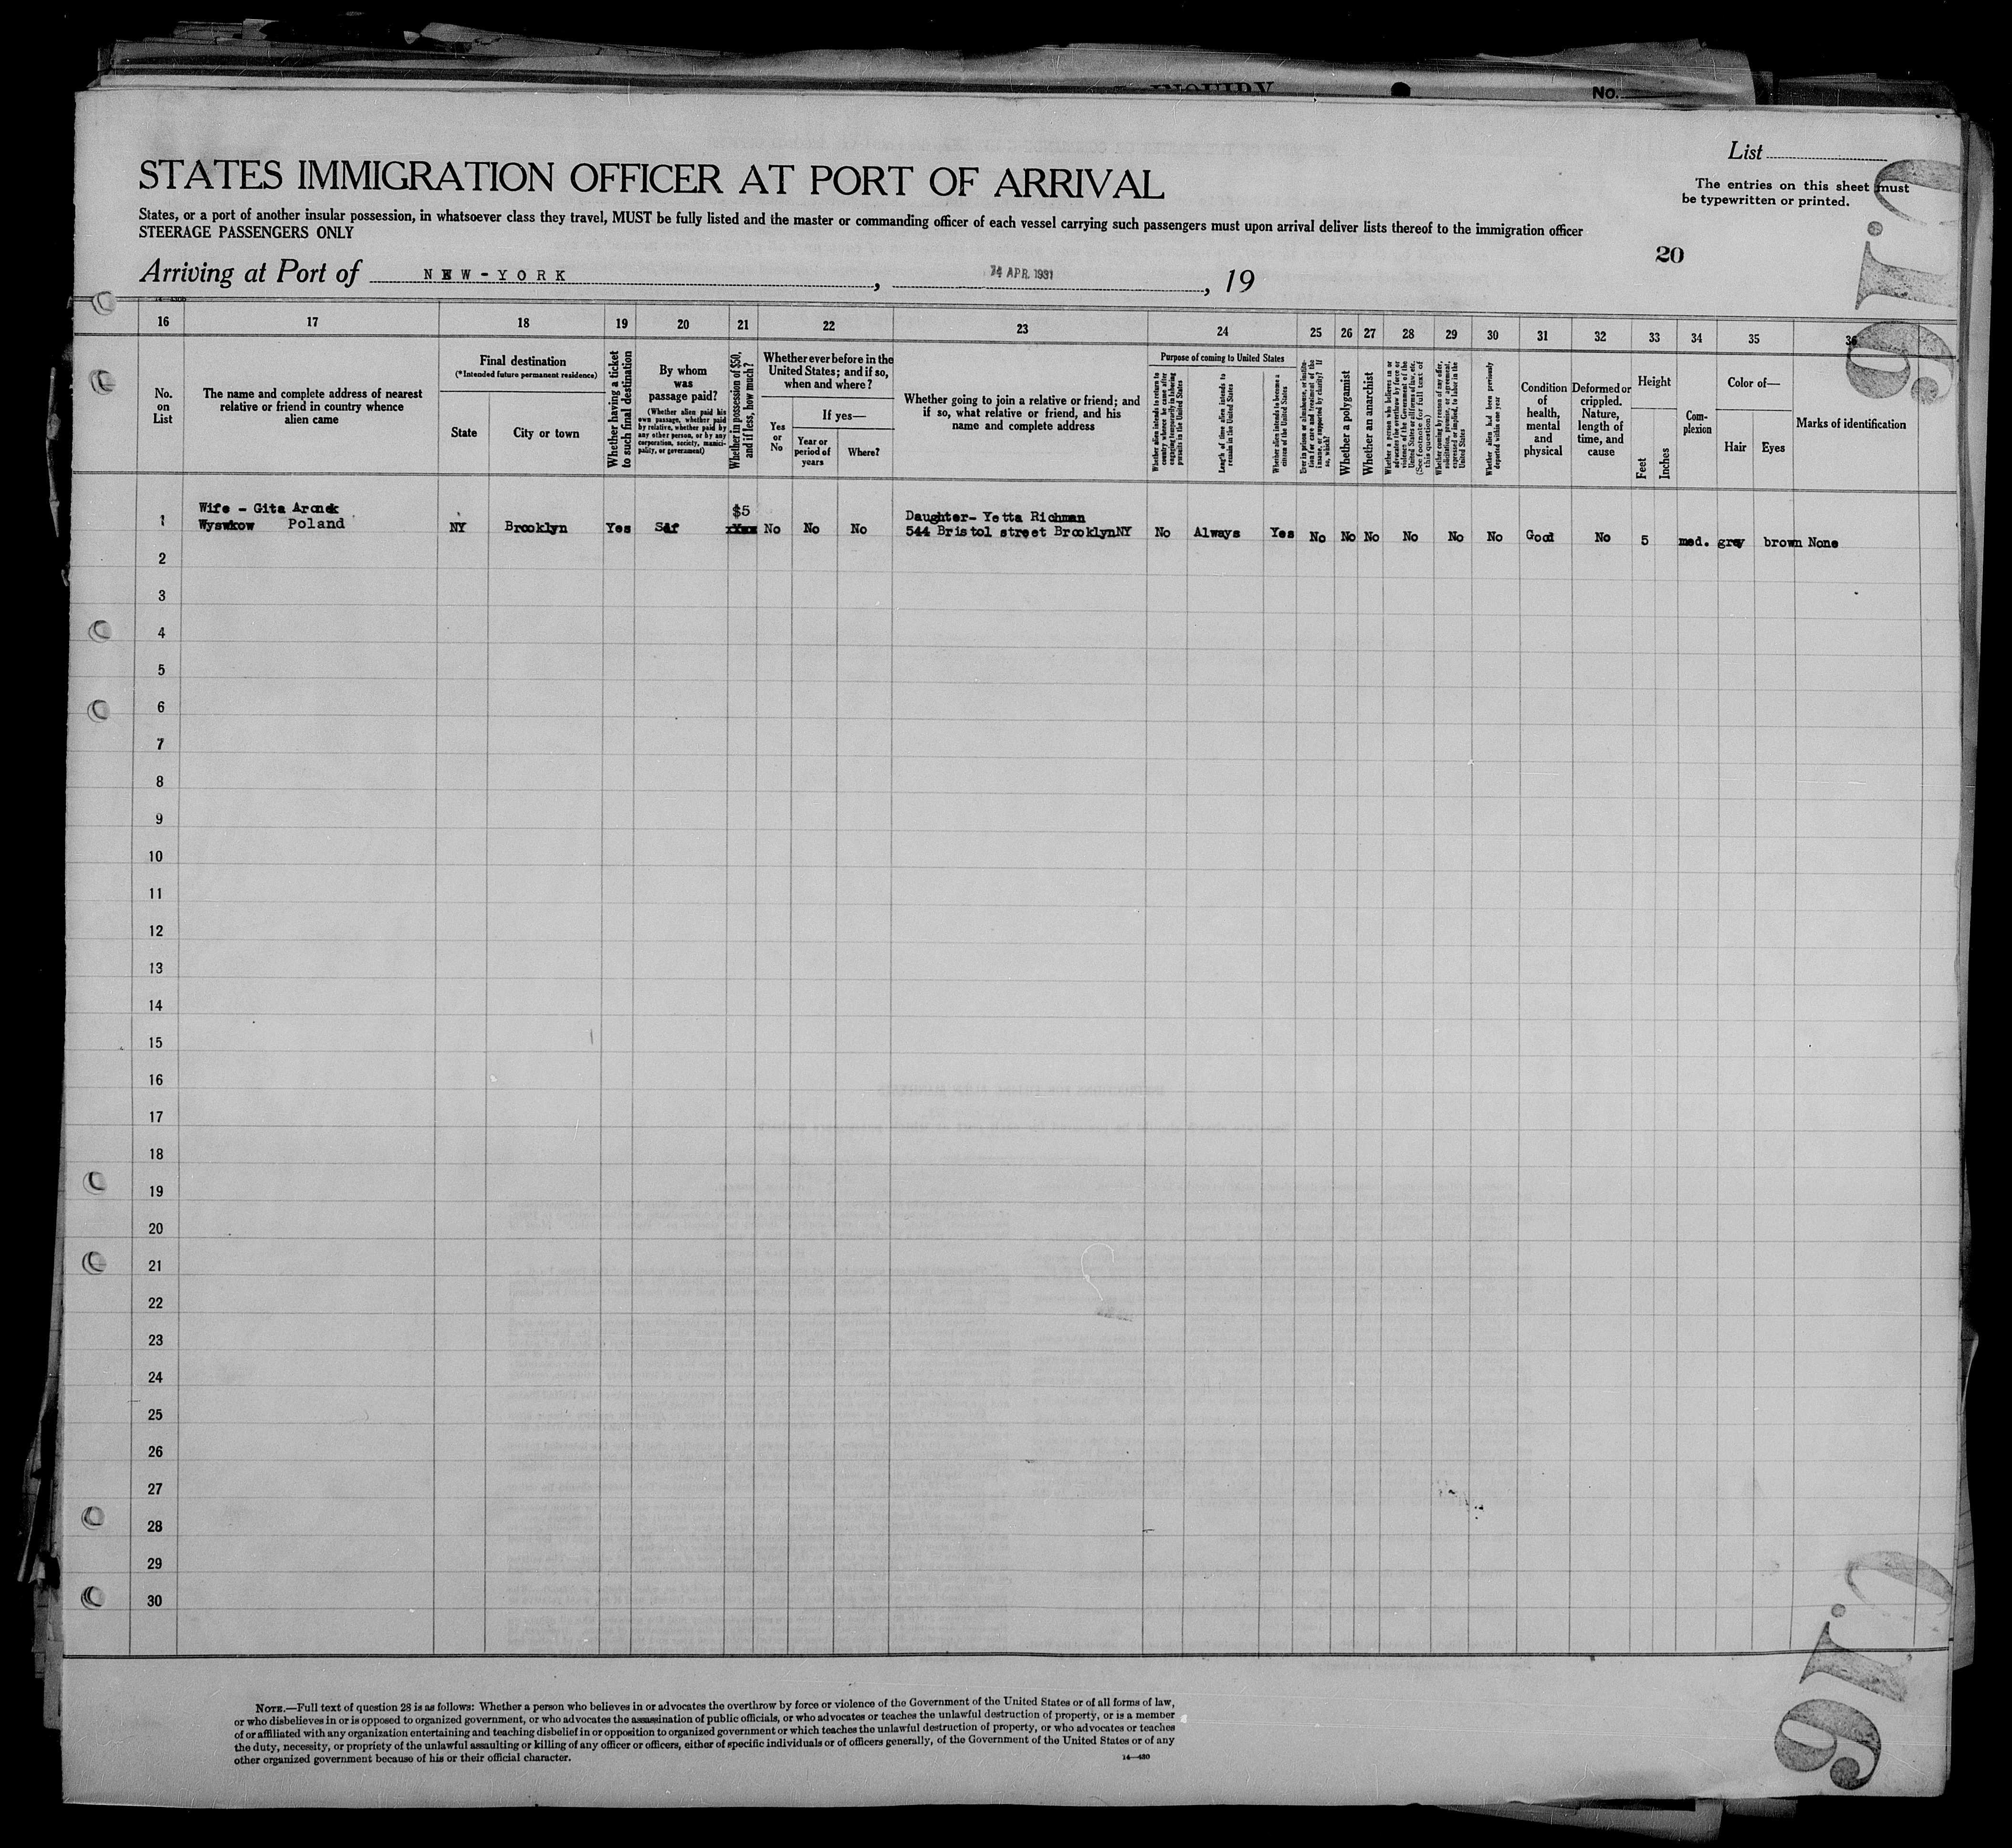 INQUIRY
No.
List
The entries on this sheet must
be typewritten or printed.
STATES IMMIGRATION OFFICER AT PORT OF ARRIVAL
States, or a port of another insular possession, in whatsoever class they travel, MUST be fully listed and the master or commanding officer of each vessel carrying such passengers must upon arrival deliver lists thereof to the immigration officer
STEERAGE PASSENGERS ONLY
20
Arriving at Port of NEW-YORK, 14 APR. 1931, 19
16 17 18 19 20 21 22 23 24 25 26 27 28 29 30 31 32 33 34 35 36
No.
on
List
The name and complete address of nearest
relative or friend in country whence
alien came
Final destination
(*Intended future permanent residence)
State
City or town
Whether having a ticket
to such final destination
By whom
was
passage paid?
(Whether alien paid his
own passage, whether paid
by relative, whether paid by
any other person, or by any
corporation, society, munici-
pality, or government)
Whether in possession of $50,
and if less, how much?
Whether ever before in the
United States; and if so,
when and where?
Yes
or
No
If yes—
Year or
period of
years
Where?
Whether going to join a relative or friend; and
if so, what relative or friend, and his
name and complete address
Purpose of coming to United States
Whether alien intends to return to
country whence he came after
engaging temporarily in laboring
pursuits in the United States
Length of time alien intends to
remain in the United States
Whether alien intends to become a
citizen of the United States
Ever in prison or almshouse, or institu-
tion for care and treatment of the
insane, or supported by charity? If
so, which?
Whether a polygamist
Whether an anarchist
Whether a person who believes in or
advocates the overthrow by force or
violence of the Government of the
United States or all forms of law, etc.
(See footnote for full text of
this question)
Whether coming by reason of any offer,
solicitation, promise, or agreement,
expressed or implied, to labor in the
United States
Whether alien had been previously
deported within one year
Condition
of
health,
mental
and
physical
Deformed or
crippled.
Nature,
length of
time, and
cause
Height
Feet
Inches
Com-
plexion
Color of—
Hair
Eyes
Marks of identification
Wife - Gita Aronek $5 Daughter- Yetta Richman
1 Wyswkow Poland NY Brooklyn Yes No No No 544 Bristol street BrooklynNY No Always Yes No No No No No No Good No 5 med. grey brown None
2
3
4
5
6
7
8
9
10
11
12
13
14
15
16
17
18
19
20
21
22
23
24
25
26
27
28
29
30
NOTE.—Full text of question 28 is as follows: Whether a person who believes in or advocates the overthrow by force or violence of the Government of the United States or of all forms of law,
or who disbelieves in or is opposed to organized government, or who advocates the assassination of public officials, or who advocates or teaches the unlawful destruction of property, or is a member
of or affiliated with any organization entertaining and teaching disbelief in or opposition to organized government or which teaches the unlawful destruction of property, or who advocates or teaches
the duty, necessity, or propriety of the unlawful assaulting or killing of any officer or officers, either of specific individuals or of officers generally, of the Government of the United States or of any
other organized government because of his or their official character.
14—480